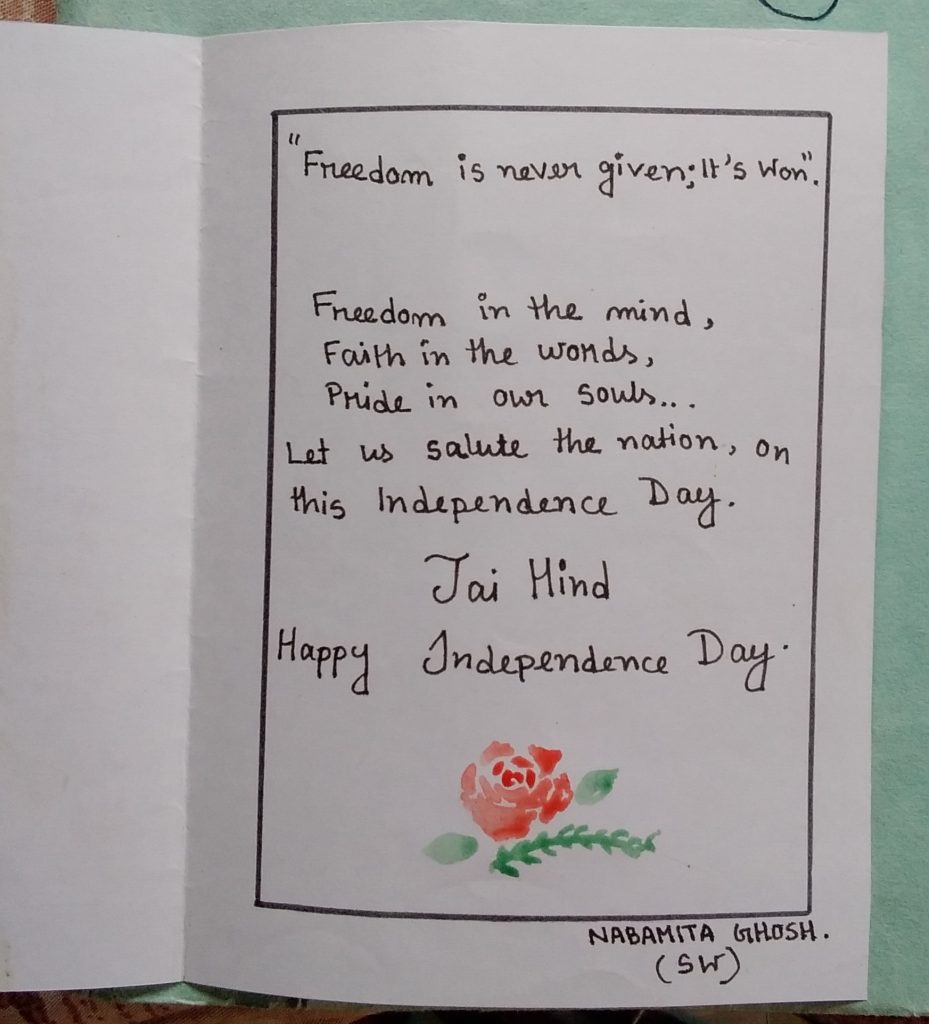 "Freedom is never given; It's Won".
Freedom in the mind,
Faith in the words,
Pride in our souls...
Let us salute the nation, on
this Independence Day.
Jai Hind
Happy Independence Day.
NABAMITA GHOSH.
(SW)